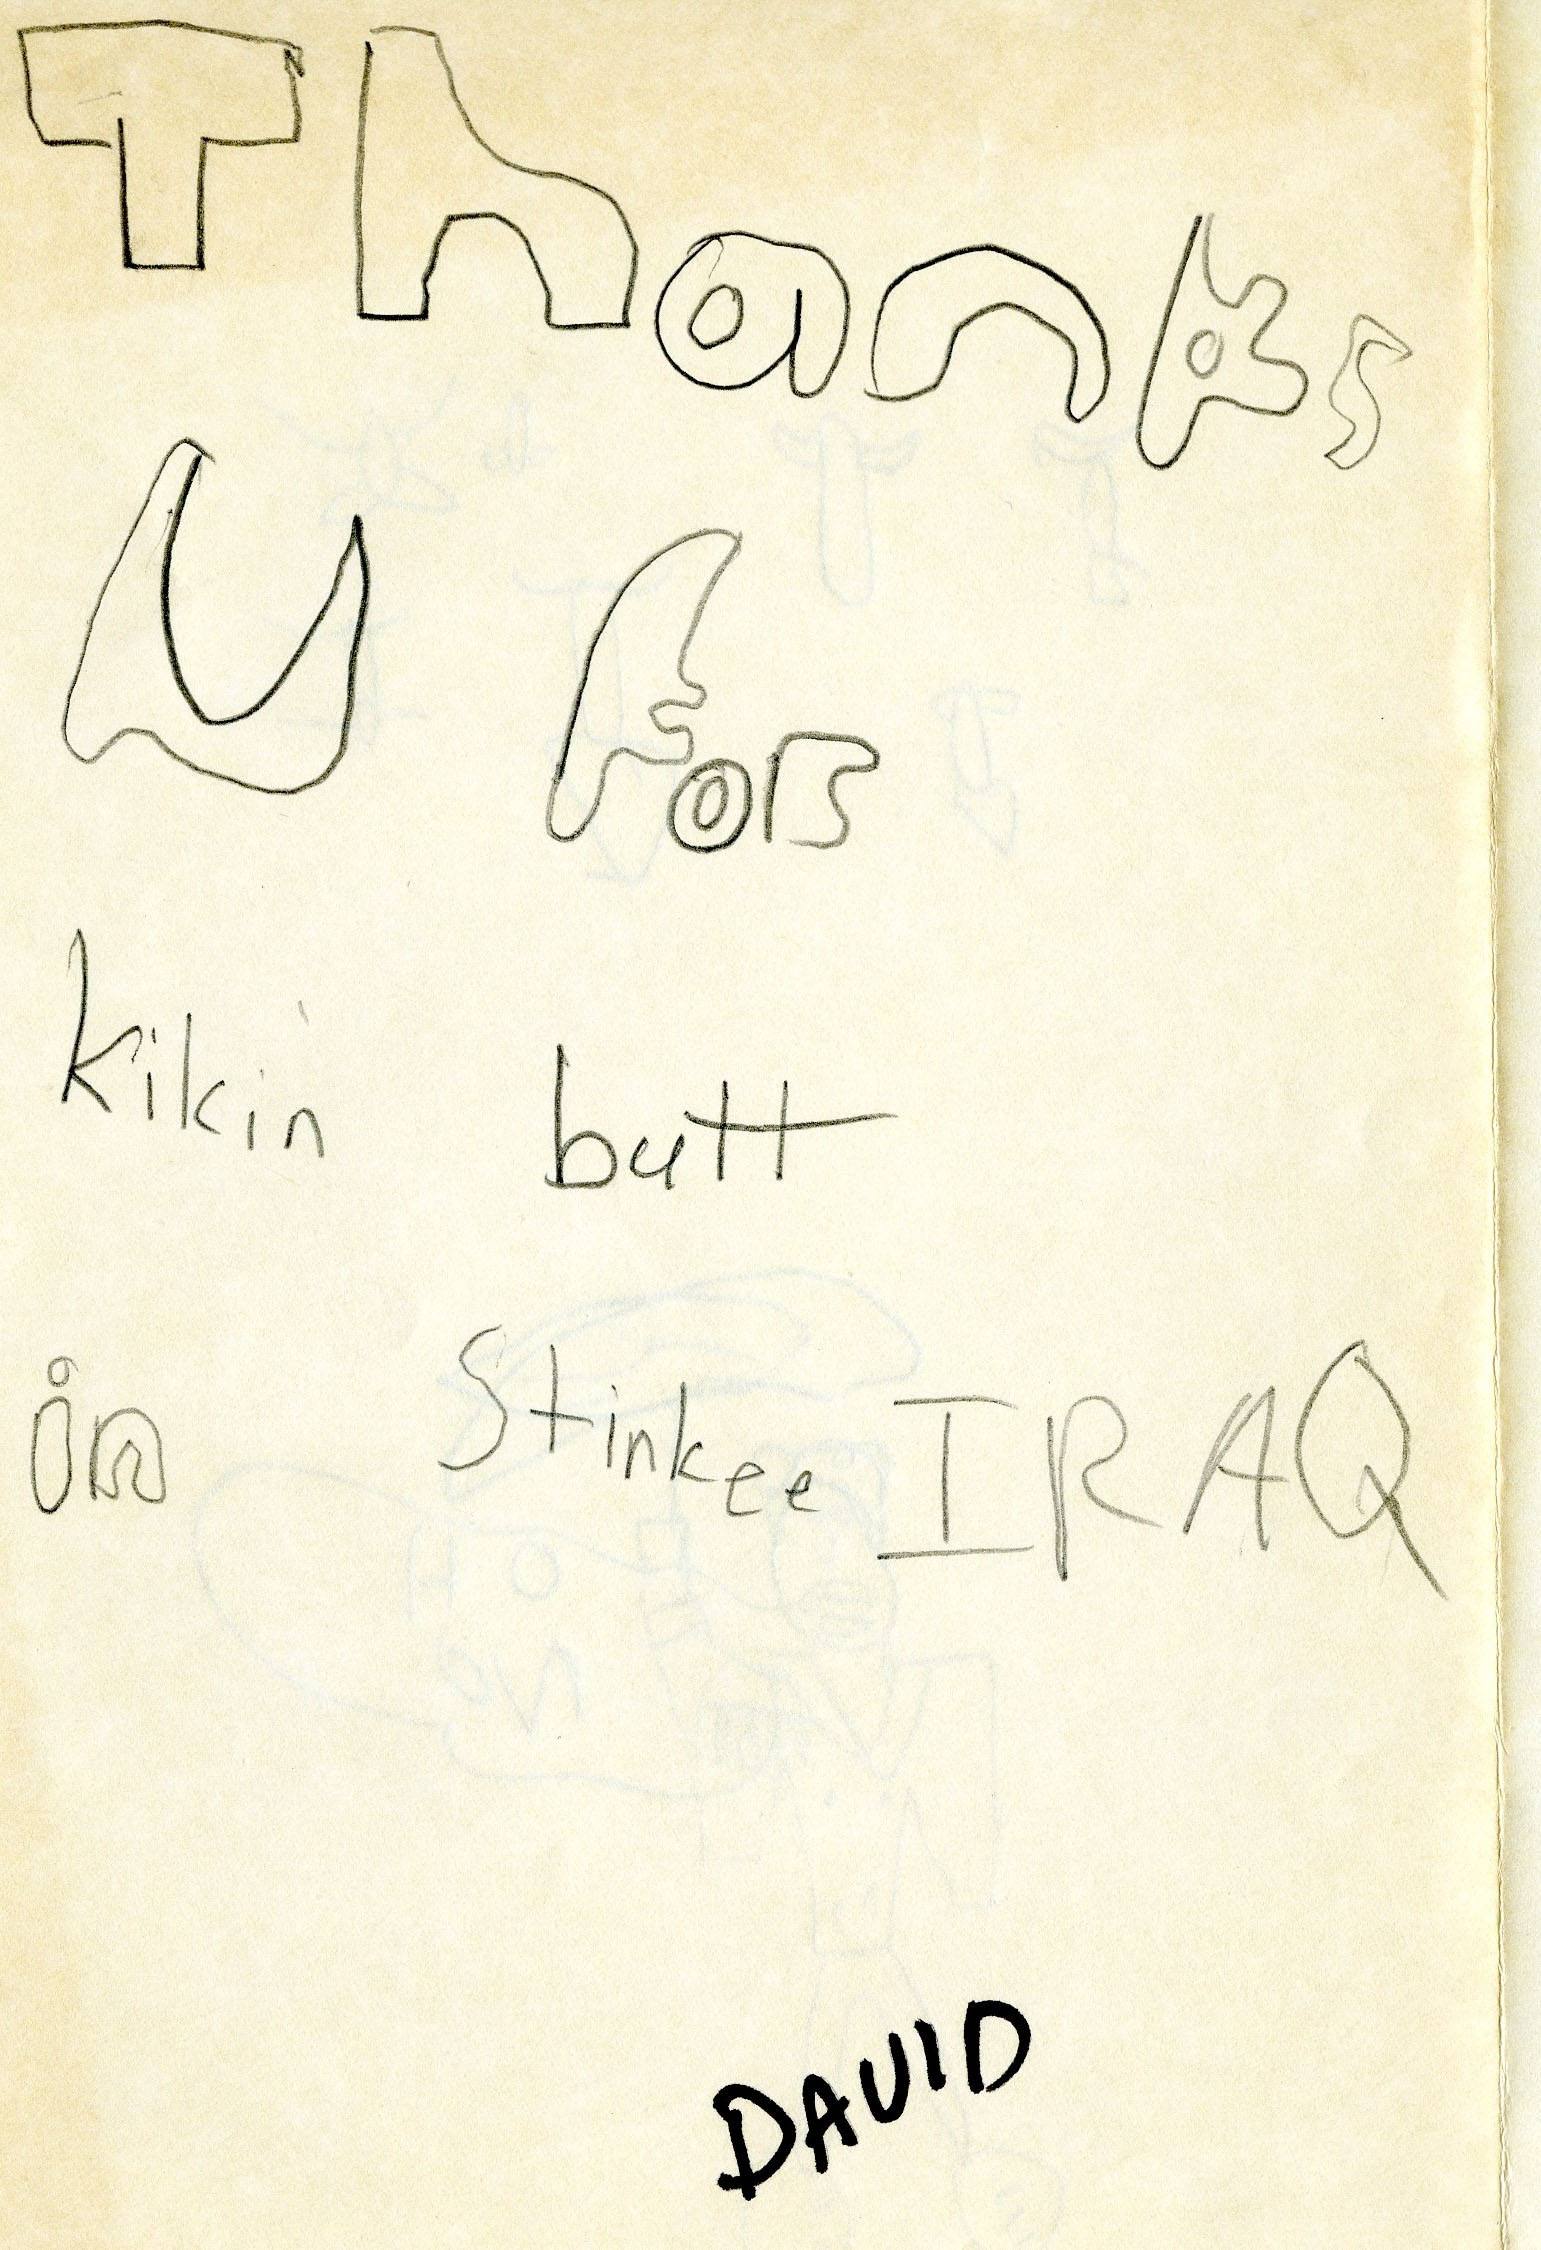 Thanks
U For
kikin butt
in Stinkee IRAQ
DAVID